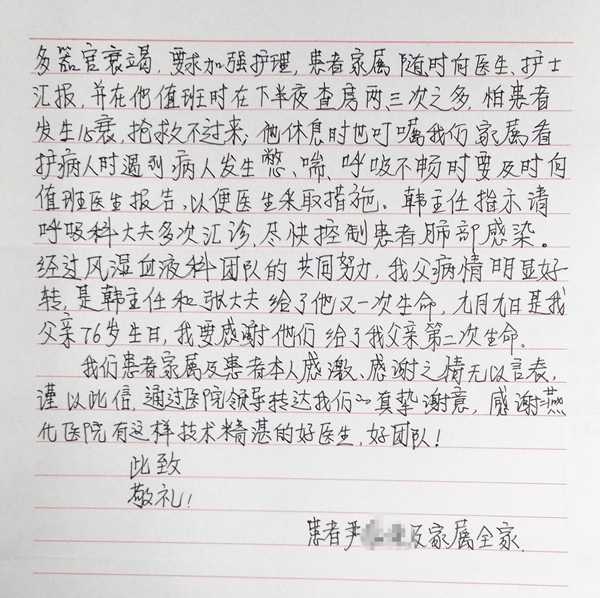 多器官衰竭，要求加强护理，患者家属随时向医生、护士
汇报，并在他值班时在下半夜查房两三次之多，怕患者
发生心衰，抢救不过来；他休息时也叮嘱我们家属看
护病人时遇到病人发生憋、喘、呼吸不畅时要及时向
值班医生报告，以便医生采取措施。韩主任指示请
呼吸科大夫多次汇诊，尽快控制患者肺部感染。
经过风湿血液科团队的共同努力，我父病情明显好
转，是韩主任和张大夫给了他又一次生命，九月九日是我
父亲76岁生日，我要感谢他们给了我父亲第二次生命。
我们患者家属及患者本人感激、感谢之情无以言表，
谨以此信，通过医院领导转达我们的真挚谢意，感谢燕
化医院有这样技术精湛的好医生，好团队！
此致
敬礼！
患者尹及家属全家